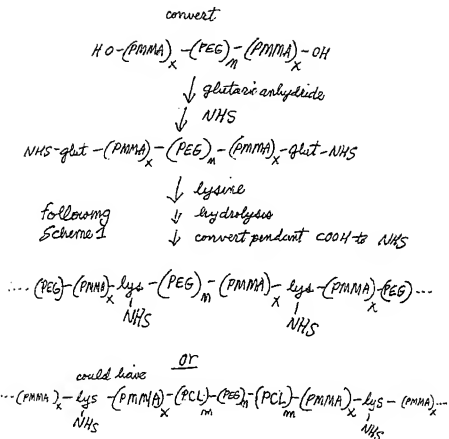 convert
HO-(PMMA)x-(PEG)n-(PMMA)x-OH
glutaric anhydride
NHS
NHS-glut-(PMMA)x-(PEG)n-(PMMA)x-glut-NHS
lysine
following
hydrolysis
Scheme 1
convert pendant COOH to NHS
....(PEG)-(PMMA)x-lys-(PEG)m-(PMMA)x-lys-(PMMA)x-(PEG)...
NHS
NHS
or
could have
...-(PMMA)x-lys-(PMMA)x-(PCL)m-(PEG)n-(PCL)m-(PMMA)x-lys-(PMMA)x...
NHS
NHS